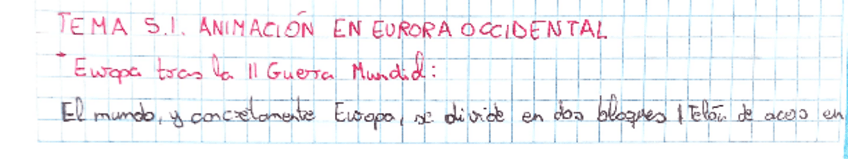 TEMA 5.1. ANIMACIÓN EN EURORA OCCIDENTAL
* Europa tras la II Guerra Mundial:
El mundo, y concretamente Europa, se divide en dos bloques | Telón de acero en